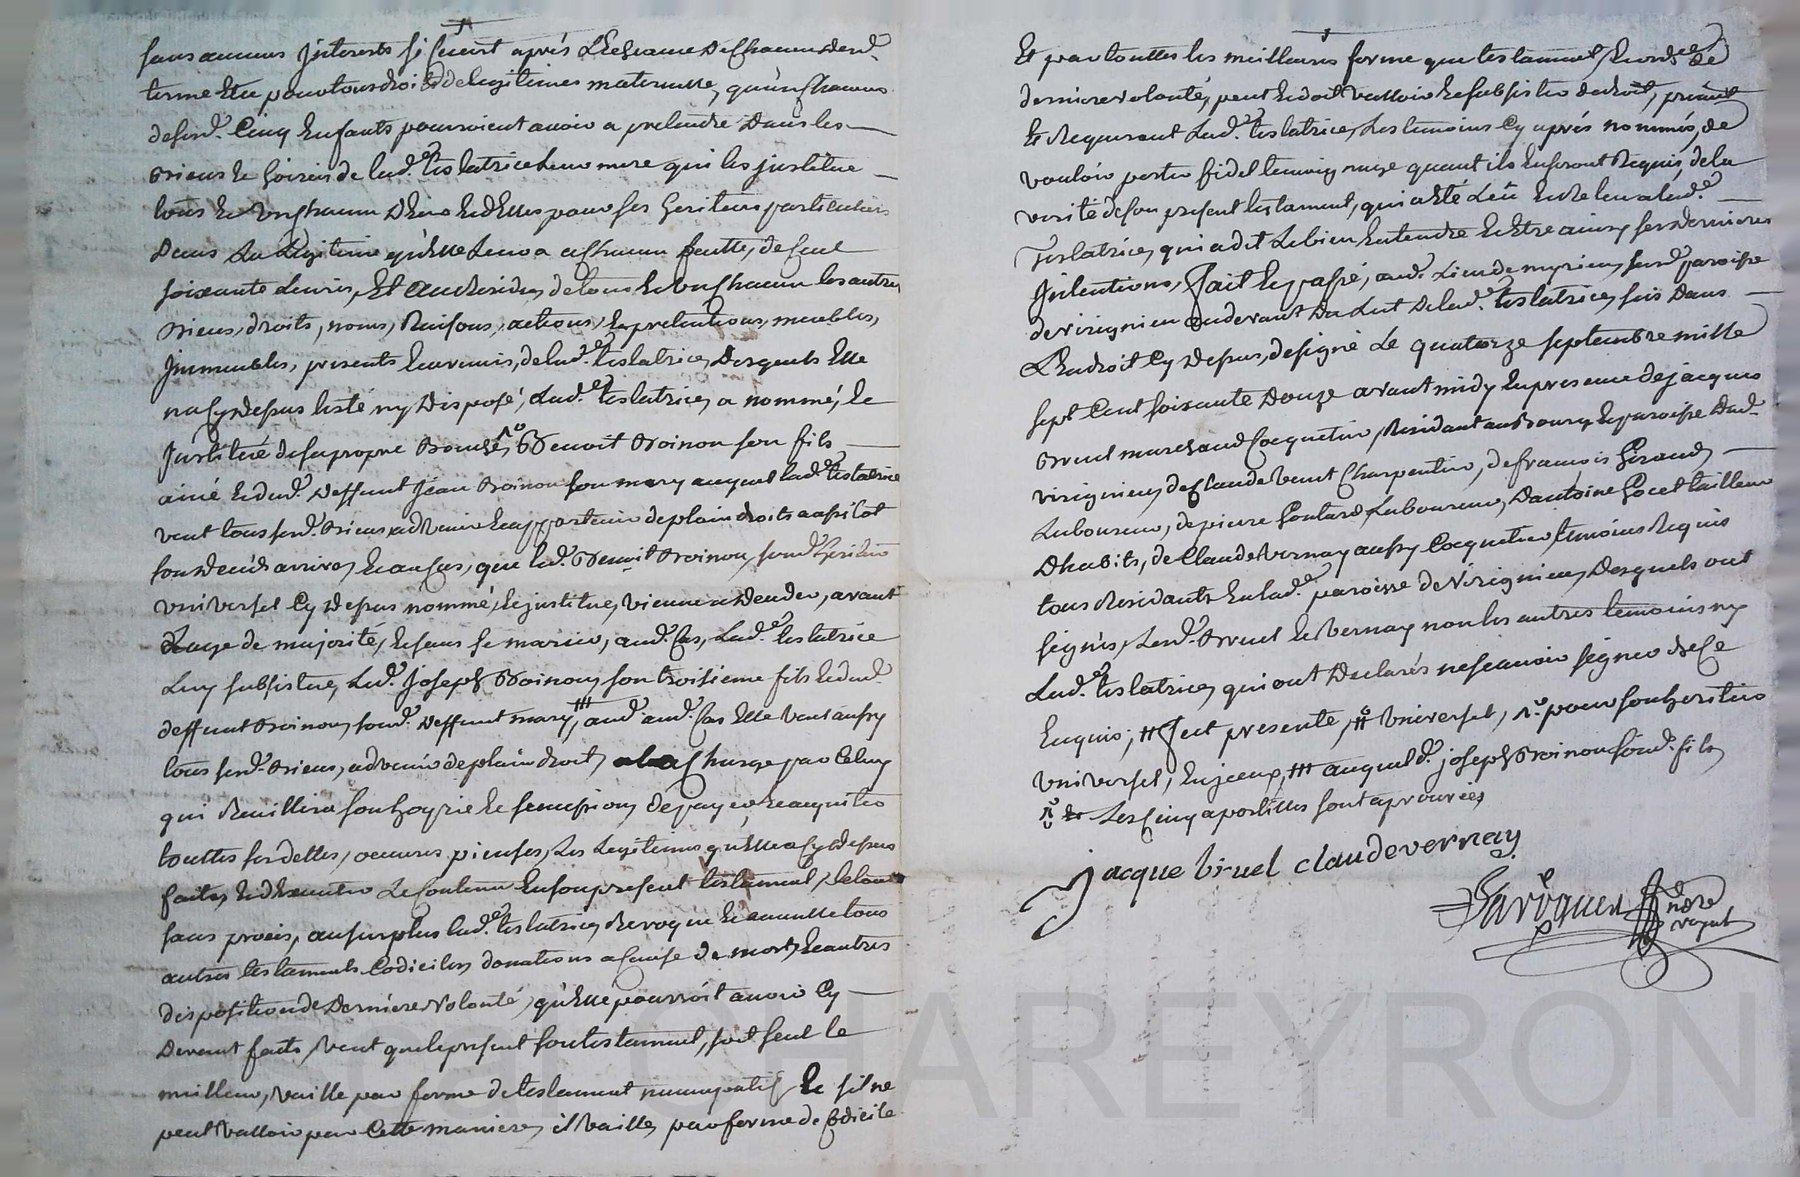 sans aucuns jnterests si ce n'est aprés L'Echeance De chacun Desd.
terme Et ce pour tous droits de legitimes maternelle, qu'un chacun
desesd. Cinq Enfants pourroient avoir a pretendre Dans les
Biens et hoirie de lad.e testatrice leur mere qui les jnstitue
tous Et un chacun D'Eux Et d'Elles pour ses heritiers particuliers
Dans La Legitime qu'Elle Leur a a chacun faitte, de cent
soixante Livres, Et au Residu de tous Et un chacun les autres
Biens, droits, noms, Raisons, actions, Et pretentions, meubles,
Jmmeubles, presents Et avenir, de lad.e testatrice, Desquels Elle
n'a Cy Depus testé ny Disposé, Lad.e testatrice, a nommé, Et
Jnstitué de sa propre Bouche, Benoit Boinon son fils
ainé Et dud. Deffunt Jean Boinon son mary auquel lad.e testatrice
veut tous sesd. Biens advenir Et appartenir de plain droits aussitot
son Decéds arrivé, Et au Cas, que led. Benoit Boinon, sond. heritier
vniversel Cy Depus nommé, Et jnstitué, vienne a Deceder, avant
L'age de majorité, Et sans se marier, aud. Cas, Lad.e testatrice
Luy subsistue, Led. Joseph Boinon, son troisieme fils Et dud.
deffunt Boinon, sond. Deffunt mary, ttt aud. aud. Cas Elle veut aussy
tous sesd. Biens, advenir de plain droit, a la Charge par Celuy
qui Reuillira son hoyrie Et sucession, de payer, Et acquitter
touttes ses dettes, oeuvres pieuses, Les Legitimes qu'Elle a Cy Depus
faites, Et d'Executer Le Contenu En son present testament, Le tout
sans procés, au surplus lad.e testatrice, Revoque Et annulle tous
autres testaments Codiciles, donations a Cause de mort, Et autres
disposition de Derniere Volonté, qu'Elle pourroit avoir Cy
Devant faits, Veut que le present son testament, soit seul le
meilleur, Vaille par forme de testament nuncupatif, Et s'il ne
peut Valloir par Cette maniere, il Vaille, par forme de Codicile
Et par touttes les meilleures forme que testament, Et ordre De
derniere volonté, peut Et doit Valloir Et subsister de droit, priant
Et Requerant Lad.e testatrice, Les temoins Cy aprés nommés, de
vouloir porter fidel temoignage quant ils En seront Requis, de la
verité de son present testament, qui a Eté Leu Et Releu a lad.e
Testatrice, qui a dit Le bien Entendre Et Etre ainsy ses dernieres
Jntentions, Fait Et passé, aud. Lieu de myrieu, susd. paroisse
de virignieu, au devant Du Lit De lad.e testatrice, sis Dans
L'Endroit Cy Depus, designé Le quatorze septembre mille
sept Cent soixante Douze avant midy En presence de jacques
Bruel marchand Coquetier, Residant au Bourg Et paroisse Dud.
virignieu, de Claude Charpentier, de francois Giraud,
Laboureur, de pierre Laboureur, D'antoine tailleur
D'habits, de Claude Vernay aussy Coquetier, temoins Requis
tous Residants En lad.e paroisse de Virignieu, Desquels ont
signés, Lesd. Bruel Et Vernay non les autres temoins ny
Lad.e testatrice, qui ont Declarés ne scavoir signer de Ce
Enquis, tt sect presente, vniversel, pour son heritier
vniversel, Enjceux, ttt auquel d. joseph Boinon sond. fils
Les Cinq apostilles sont aprouvées
jacque bruel claude vernay
nore
royal
CHAREYRON